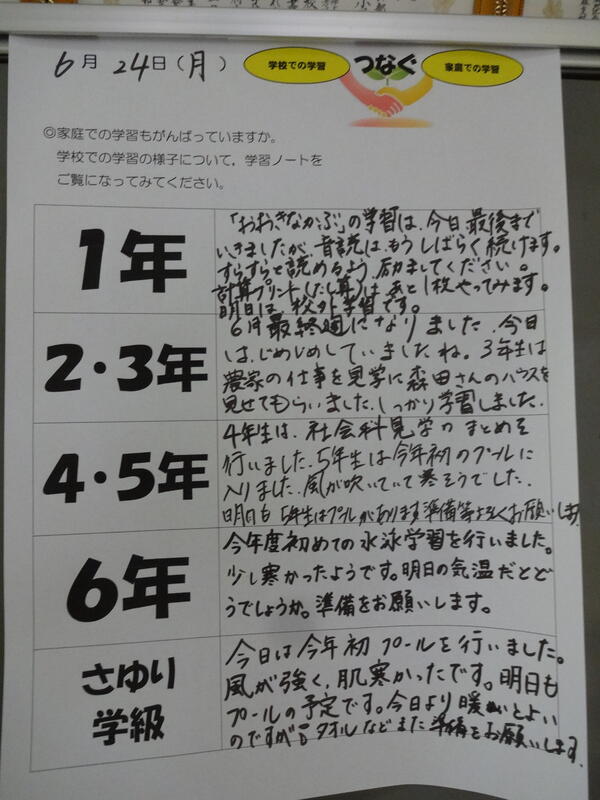 6月 24日(月)
学校での学習 つなぐ 家庭での学習
◎家庭での学習もがんばっていますか。
学校での学習の様子について，学習ノートを
ご覧になってみてください。
1年
「おおきなかぶ」の学習は、今日最後まで
いきましたが、音読は、もうしばらく続けます。
すらすらと読めるよう、励ましてください。
計算プリント(たし算)は あと1枚やってみます。
明日は、校外学習です。
2・3年
6月最終週になりました。今日
は、じめじめしていましたね。3年生は
農家の仕事を見学に森田さんのハウスを
見せてもらいました。しっかり学習しました。
4・5年
4年生は、社会科見学のまとめを
行いました。5年生は今年初のプールに
入りました。風が吹いていて寒そうでした。
明日も5年生はプールがあります準備等よろしくお願いします
6年
今年度初めての水泳学習を行いました。
少し寒かったようです。明日の気温だとど
うでしょうか。準備をお願いします。
さゆり
学級
今日は今年初プールを行いました。
風が強く、肌寒かったです。明日も
プールの予定です。今日より暖かいとよい
のですが タオルなどまた準備をお願いします。